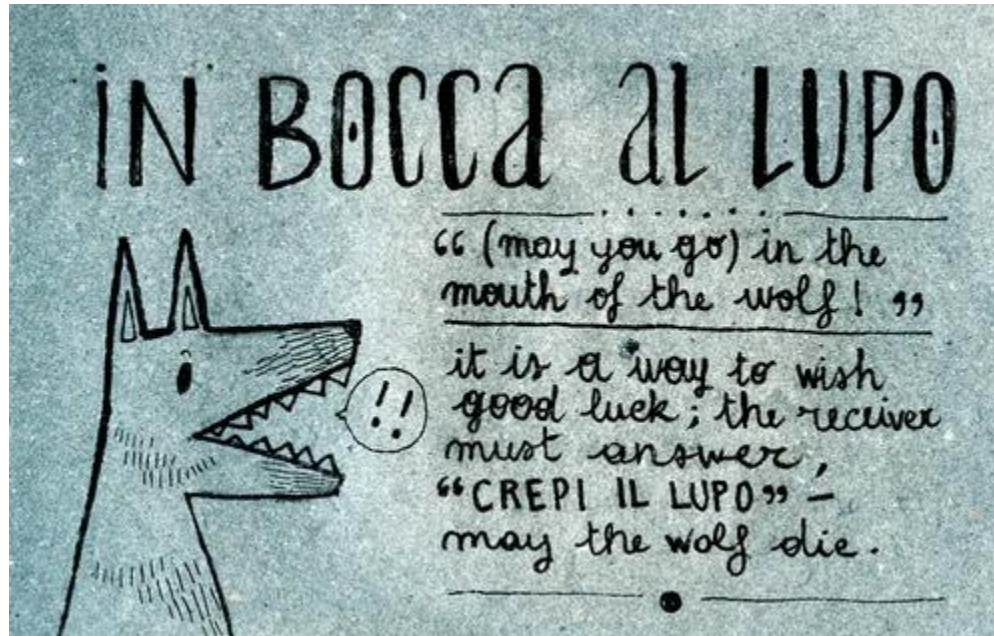 iN BOCCa aL LUPO
“(may you go) in the
mouth of the wolf!”
it is a way to wish
good luck; the receiver
must answer,
“CREPI IL LUPO” –
may the wolf die.
!!